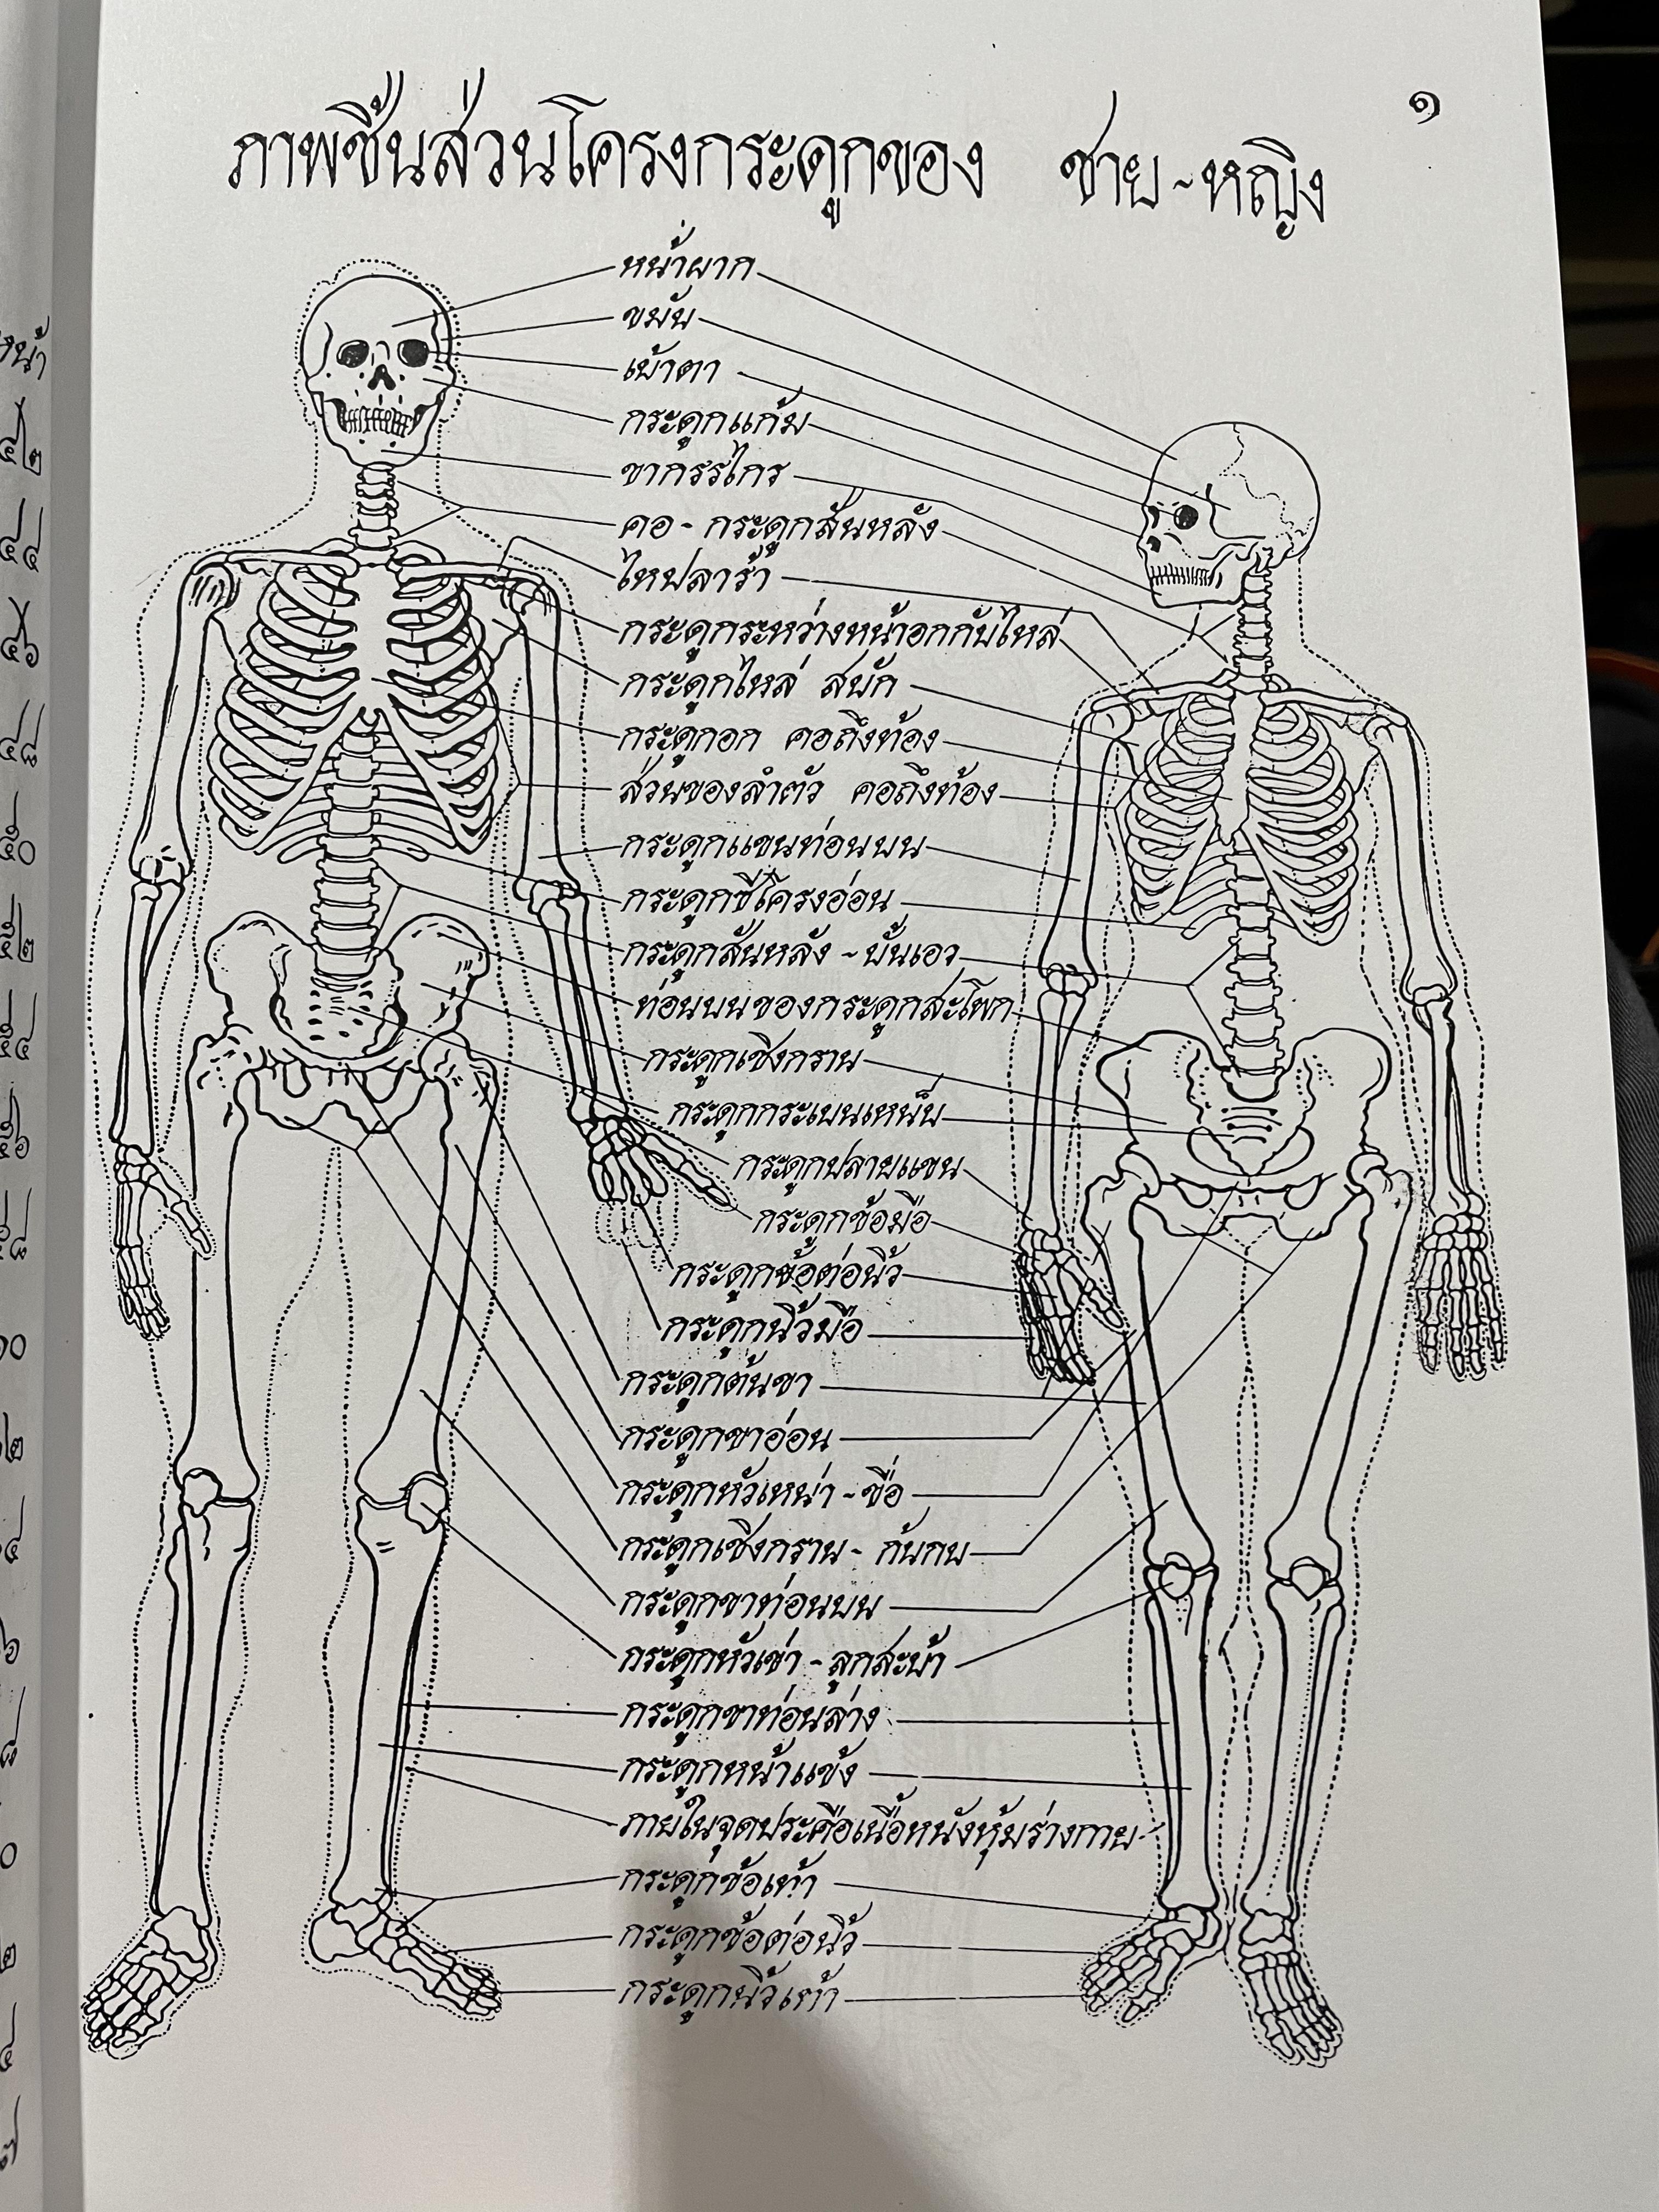 ๑
ภาพชิ้นส่วนโครงกระดูกของ ชาย-หญิง
หน้าผาก
ขมับ
เบ้าตา
กระดูกแก้ม
ขากรรไกร
คอ - กระดูกสันหลัง
ไหปลาร้า
กระดูกระหว่างหน้าอกกับไหล่
กระดูกไหล่ สบัก
กระดูกอก คอถึงท้อง
ส่วนของลำตัว คอถึงท้อง
กระดูกแขนท่อนบน
กระดูกซี่โครงอ่อน
กระดูกสันหลัง - บั้นเอว
ท่อนบนของกระดูกสะโพก
กระดูกเชิงกราน
กระดูกกระเบนเหน็บ
กระดูกปลายแขน
กระดูกข้อมือ
กระดูกข้อต่อนิ้ว
กระดูกนิ้วมือ
กระดูกต้นขา
กระดูกขาอ่อน
กระดูกหัวเหน่า - ขื่อ
กระดูกเชิงกราน - ก้นกบ
กระดูกขาท่อนบน
กระดูกหัวเข่า - ลูกสะบ้า
กระดูกขาท่อนล่าง
กระดูกหน้าแข้ง
ภายในจุดประคือเนื้อหนังหุ้มร่างกาย
กระดูกข้อเท้า
กระดูกข้อต่อนิ้ว
กระดูกนิ้วเท้า